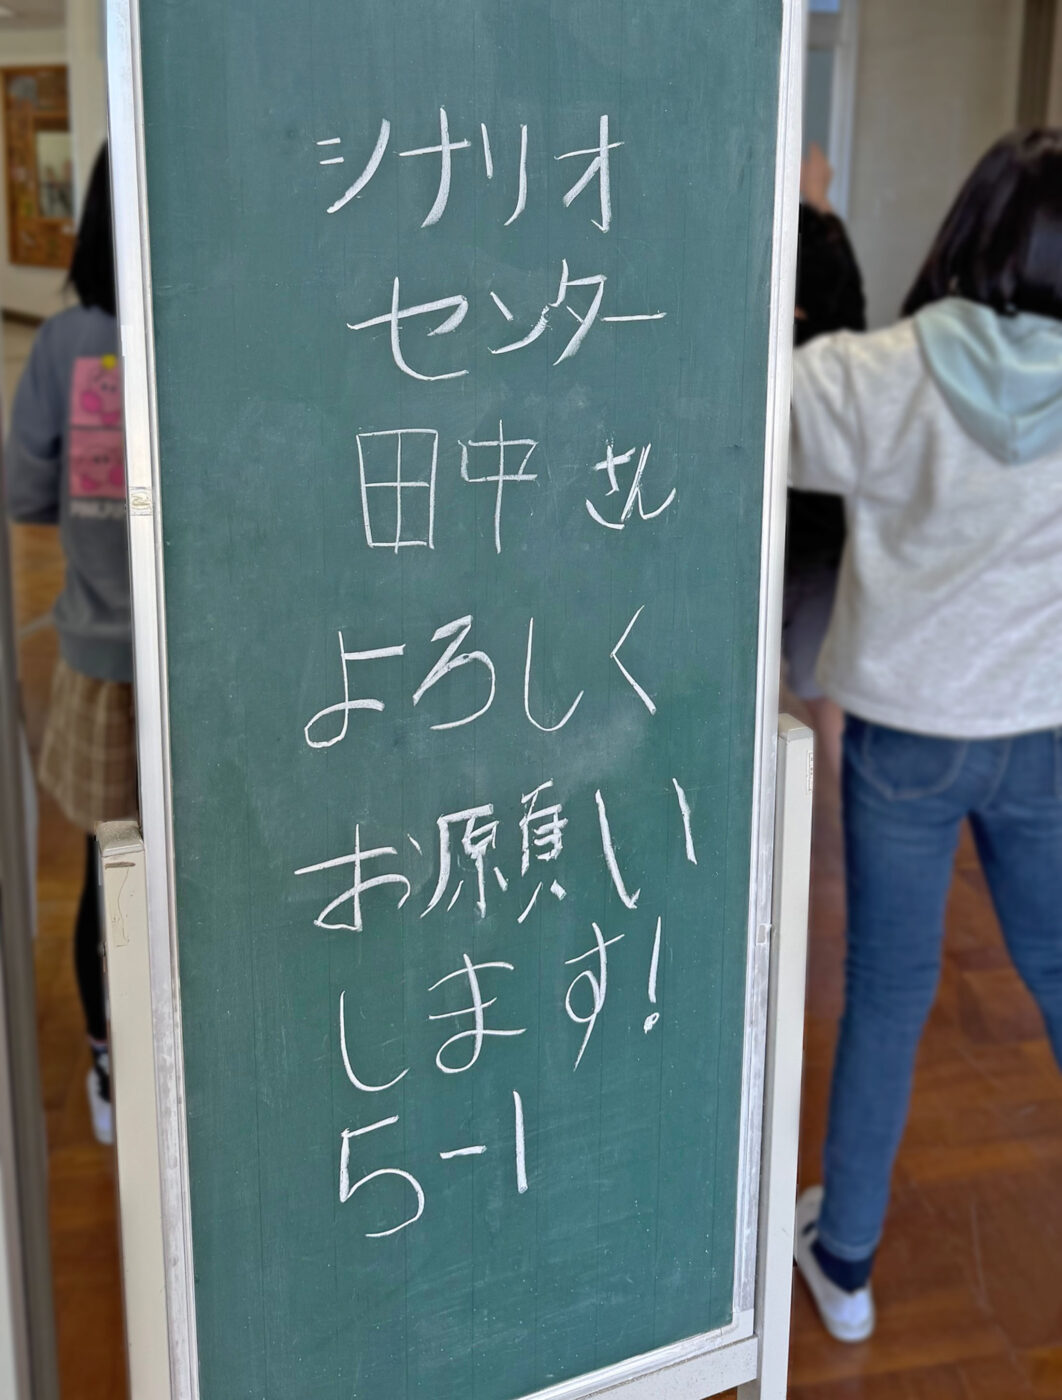 シナリオ
センター
田中さん
よろしく
お願い
します!
5-1